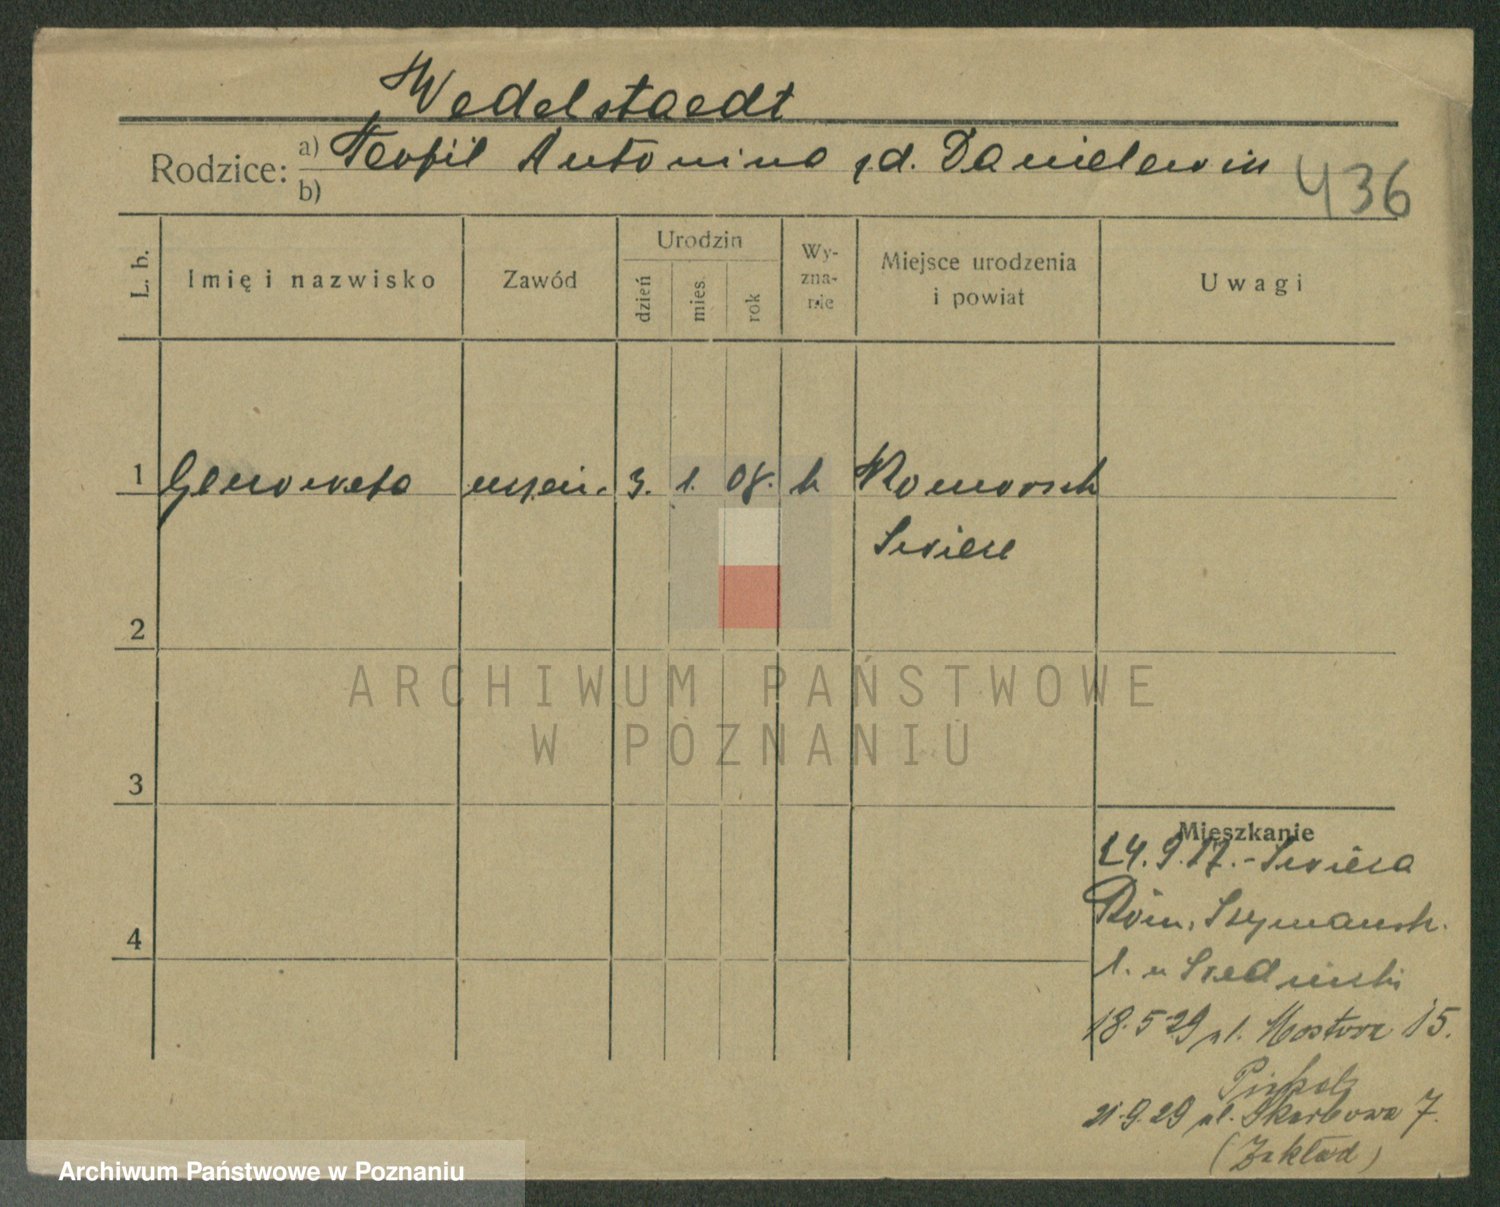 Wedelstaedt
Rodzice: a) Teofil Antonina z d. Danielewicz
b)
436
L. b.
Imię i nazwisko
Zawód
Urodzin
dzień
mies.
rok
Wy-
zna-
nie
Miejsce urodzenia
i powiat
Uwagi
1 Genowefa 3. 1. 08. k Komorsk
Świecie
2
3
4
Mieszkanie
24.9.27.- Świecia
Szymańsk.
1. u
18.5 29 ul. Mostowa 15.
21.9.29 ul. Skarbowa 7.
(Zakład)
ARCHIWUM PAŃSTWOWE
W POZNANIU
Archiwum Państwowe w Poznaniu